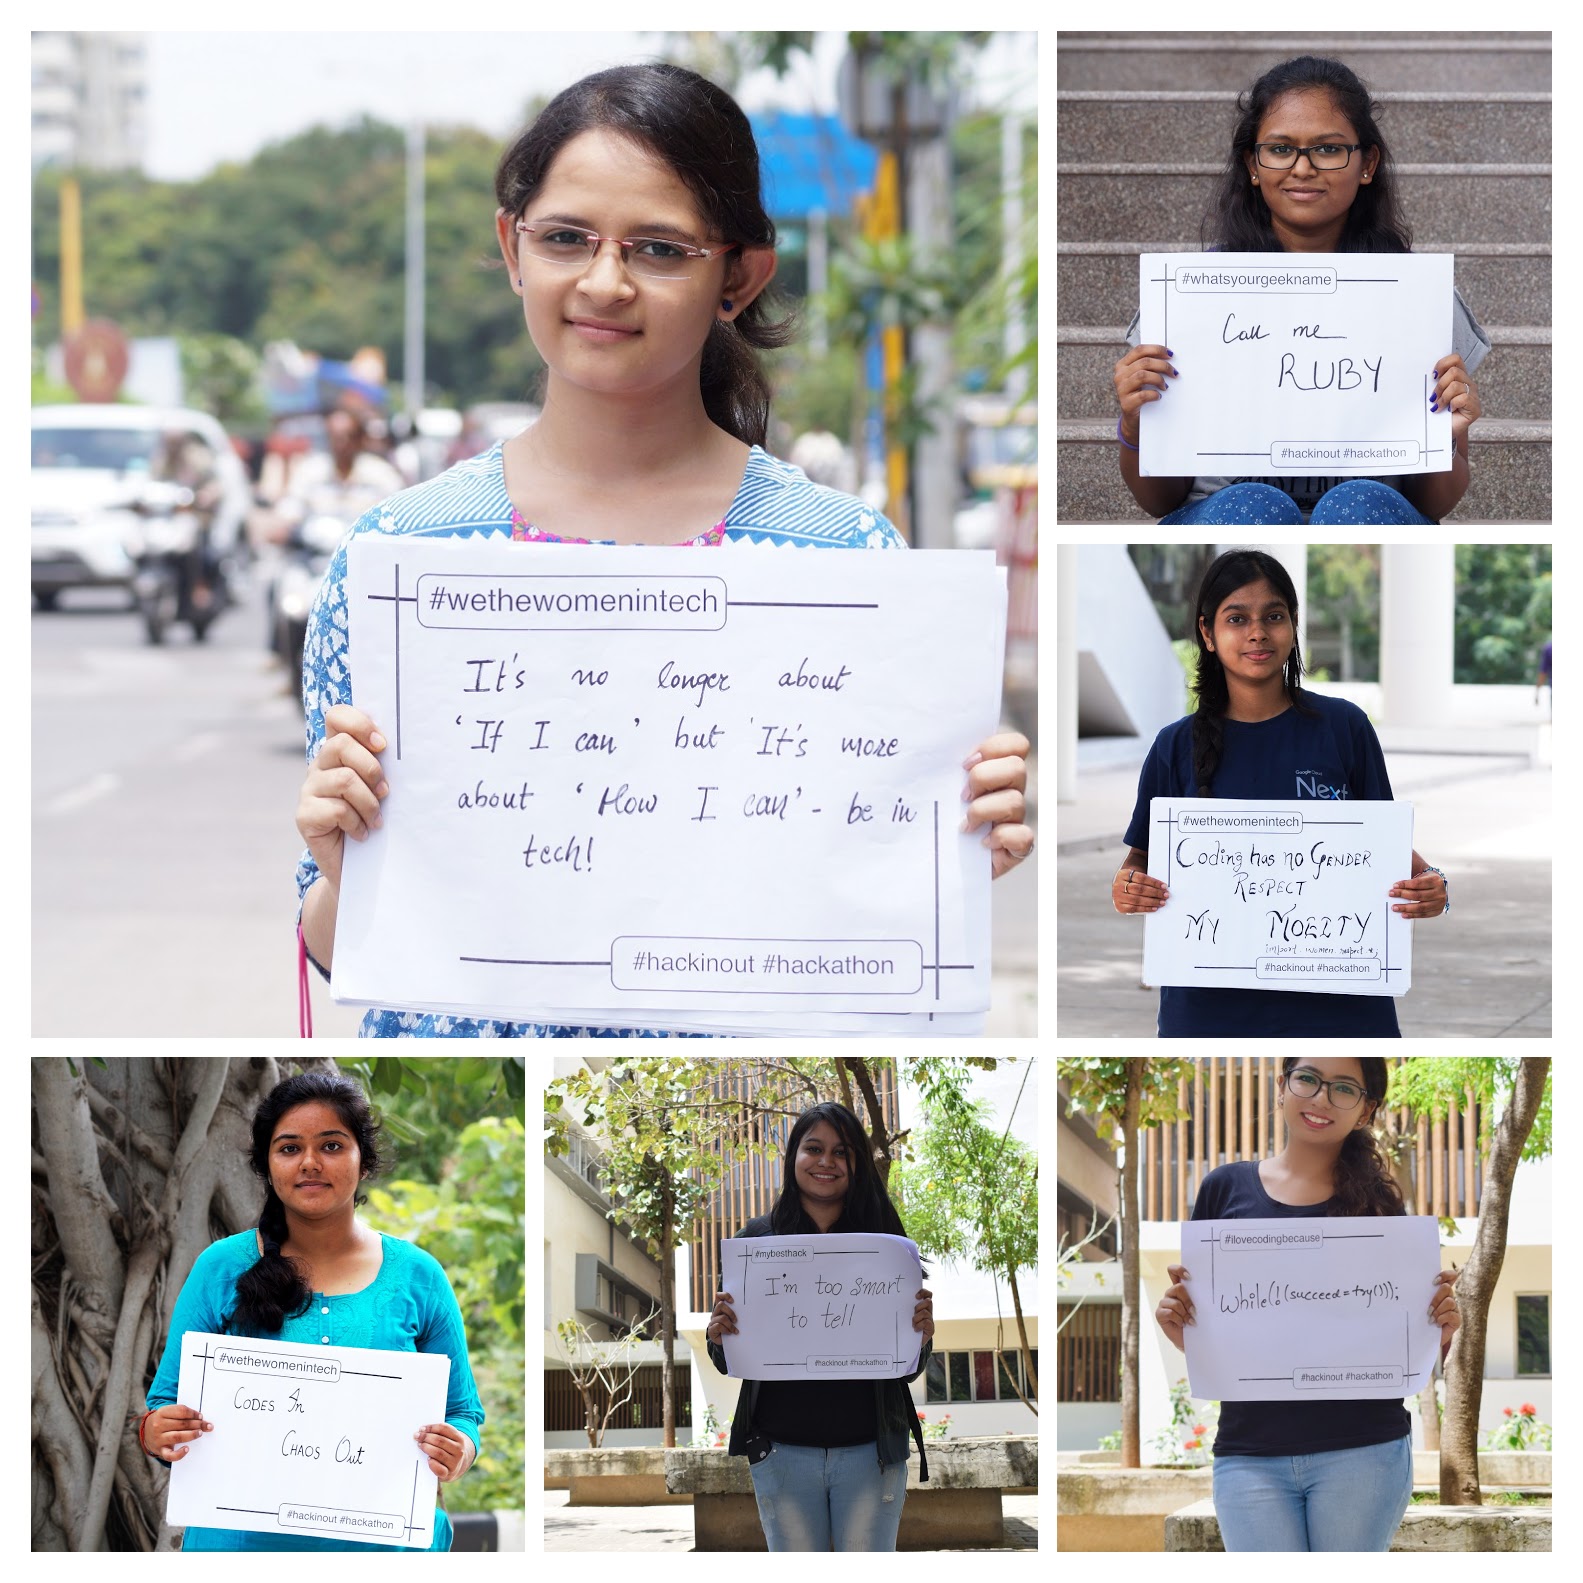 #wethewomenintech
It's no longer about
'If I can' but 'It's more
about 'How I can' - be in
tech!
#hackinout #hackathon
#whatsyourgeekname
Call me
RUBY
#hackinout #hackathon
Google Cloud
Next
#wethewomenintech
Coding has no GENDER
RESPECT
MY MOEITY
import women.respect *;
#hackinout #hackathon
#wethewomenintech
CODES In
CHAOS Out
#hackinout #hackathon
#mybesthack
I'm too smart
to tell
#hackinout #hackathon
#ilovecodingbecause
while(!(succeed=try()));
#hackinout #hackathon